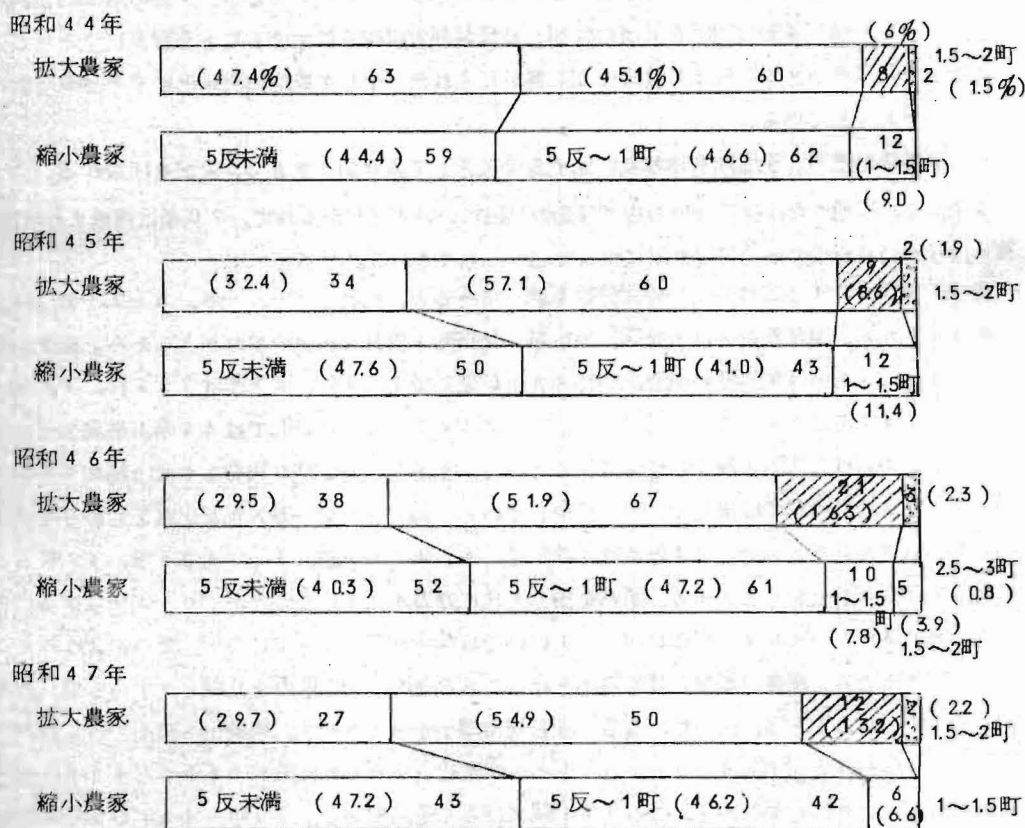 昭和44年
(6%)
拡大農家 (47.4%) 63 (45.1%) 60 8 2 1.5～2町
(1.5%)
縮小農家 5反未満 (44.4) 59 5反～1町 (46.6) 62 12
(1～1.5町)
(9.0)
昭和45年
2(1.9)
拡大農家 (32.4) 34 (57.1) 60 9
(8.6) 1.5～2町
縮小農家 5反未満 (47.6) 50 5反～1町 (41.0) 43 12
1～1.5町
(11.4)
昭和46年
拡大農家 (29.5) 38 (51.9) 67 21 3 (2.3)
(16.3)
縮小農家 5反未満 (40.3) 52 5反～1町 (47.2) 61 10 5 2.5～3町
1～1.5 (0.8)
町 (3.9)
(7.8) 1.5～2町
昭和47年
拡大農家 (29.7) 27 (54.9) 50 12 2 (2.2)
(13.2) 1.5～2町
縮小農家 5反未満 (47.2) 43 5反～1町 (46.2) 42 6 1～1.5町
(6.6)